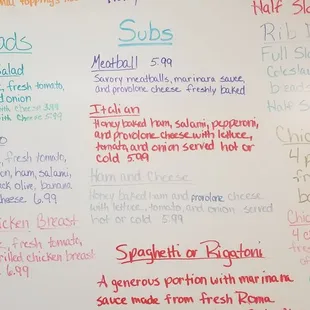 Subs
Meatball 5.99
Savory meatballs, marinara sauce,
and provolone cheese freshly baked
Italian
Honey baked ham, salami, pepperoni,
and provolone cheese with lettuce,
tomato, and onion served hot or
cold 5.99
Ham and Cheese
Honey baked ham and provolone cheese
with lettuce, tomato, and onion served
hot or cold 5.99
Spaghetti or Rigatoni
A generous portion with marinara
sauce made from fresh Roma
ads
Salad
, fresh tomato,
and onion
with cheese
with cheese 5.99
, fresh tomato,
on, ham, salami,
ack olive, banana
cheese 6.99
icken Breast
, fresh tomato,
rilled chicken breast
6.99
Half Sla
Rib
Full Sla
Half S
Chic
4 p
Chic